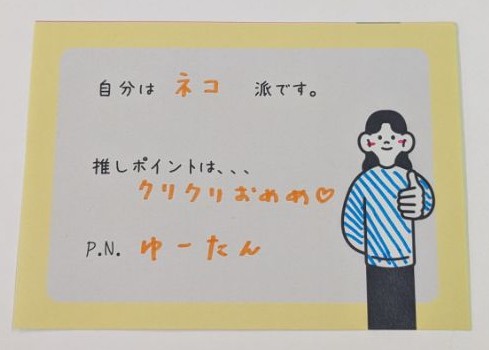 自分は ネコ 派です。
推しポイントは、、、
クリクリおめめ♡
P.N. ゆーたん